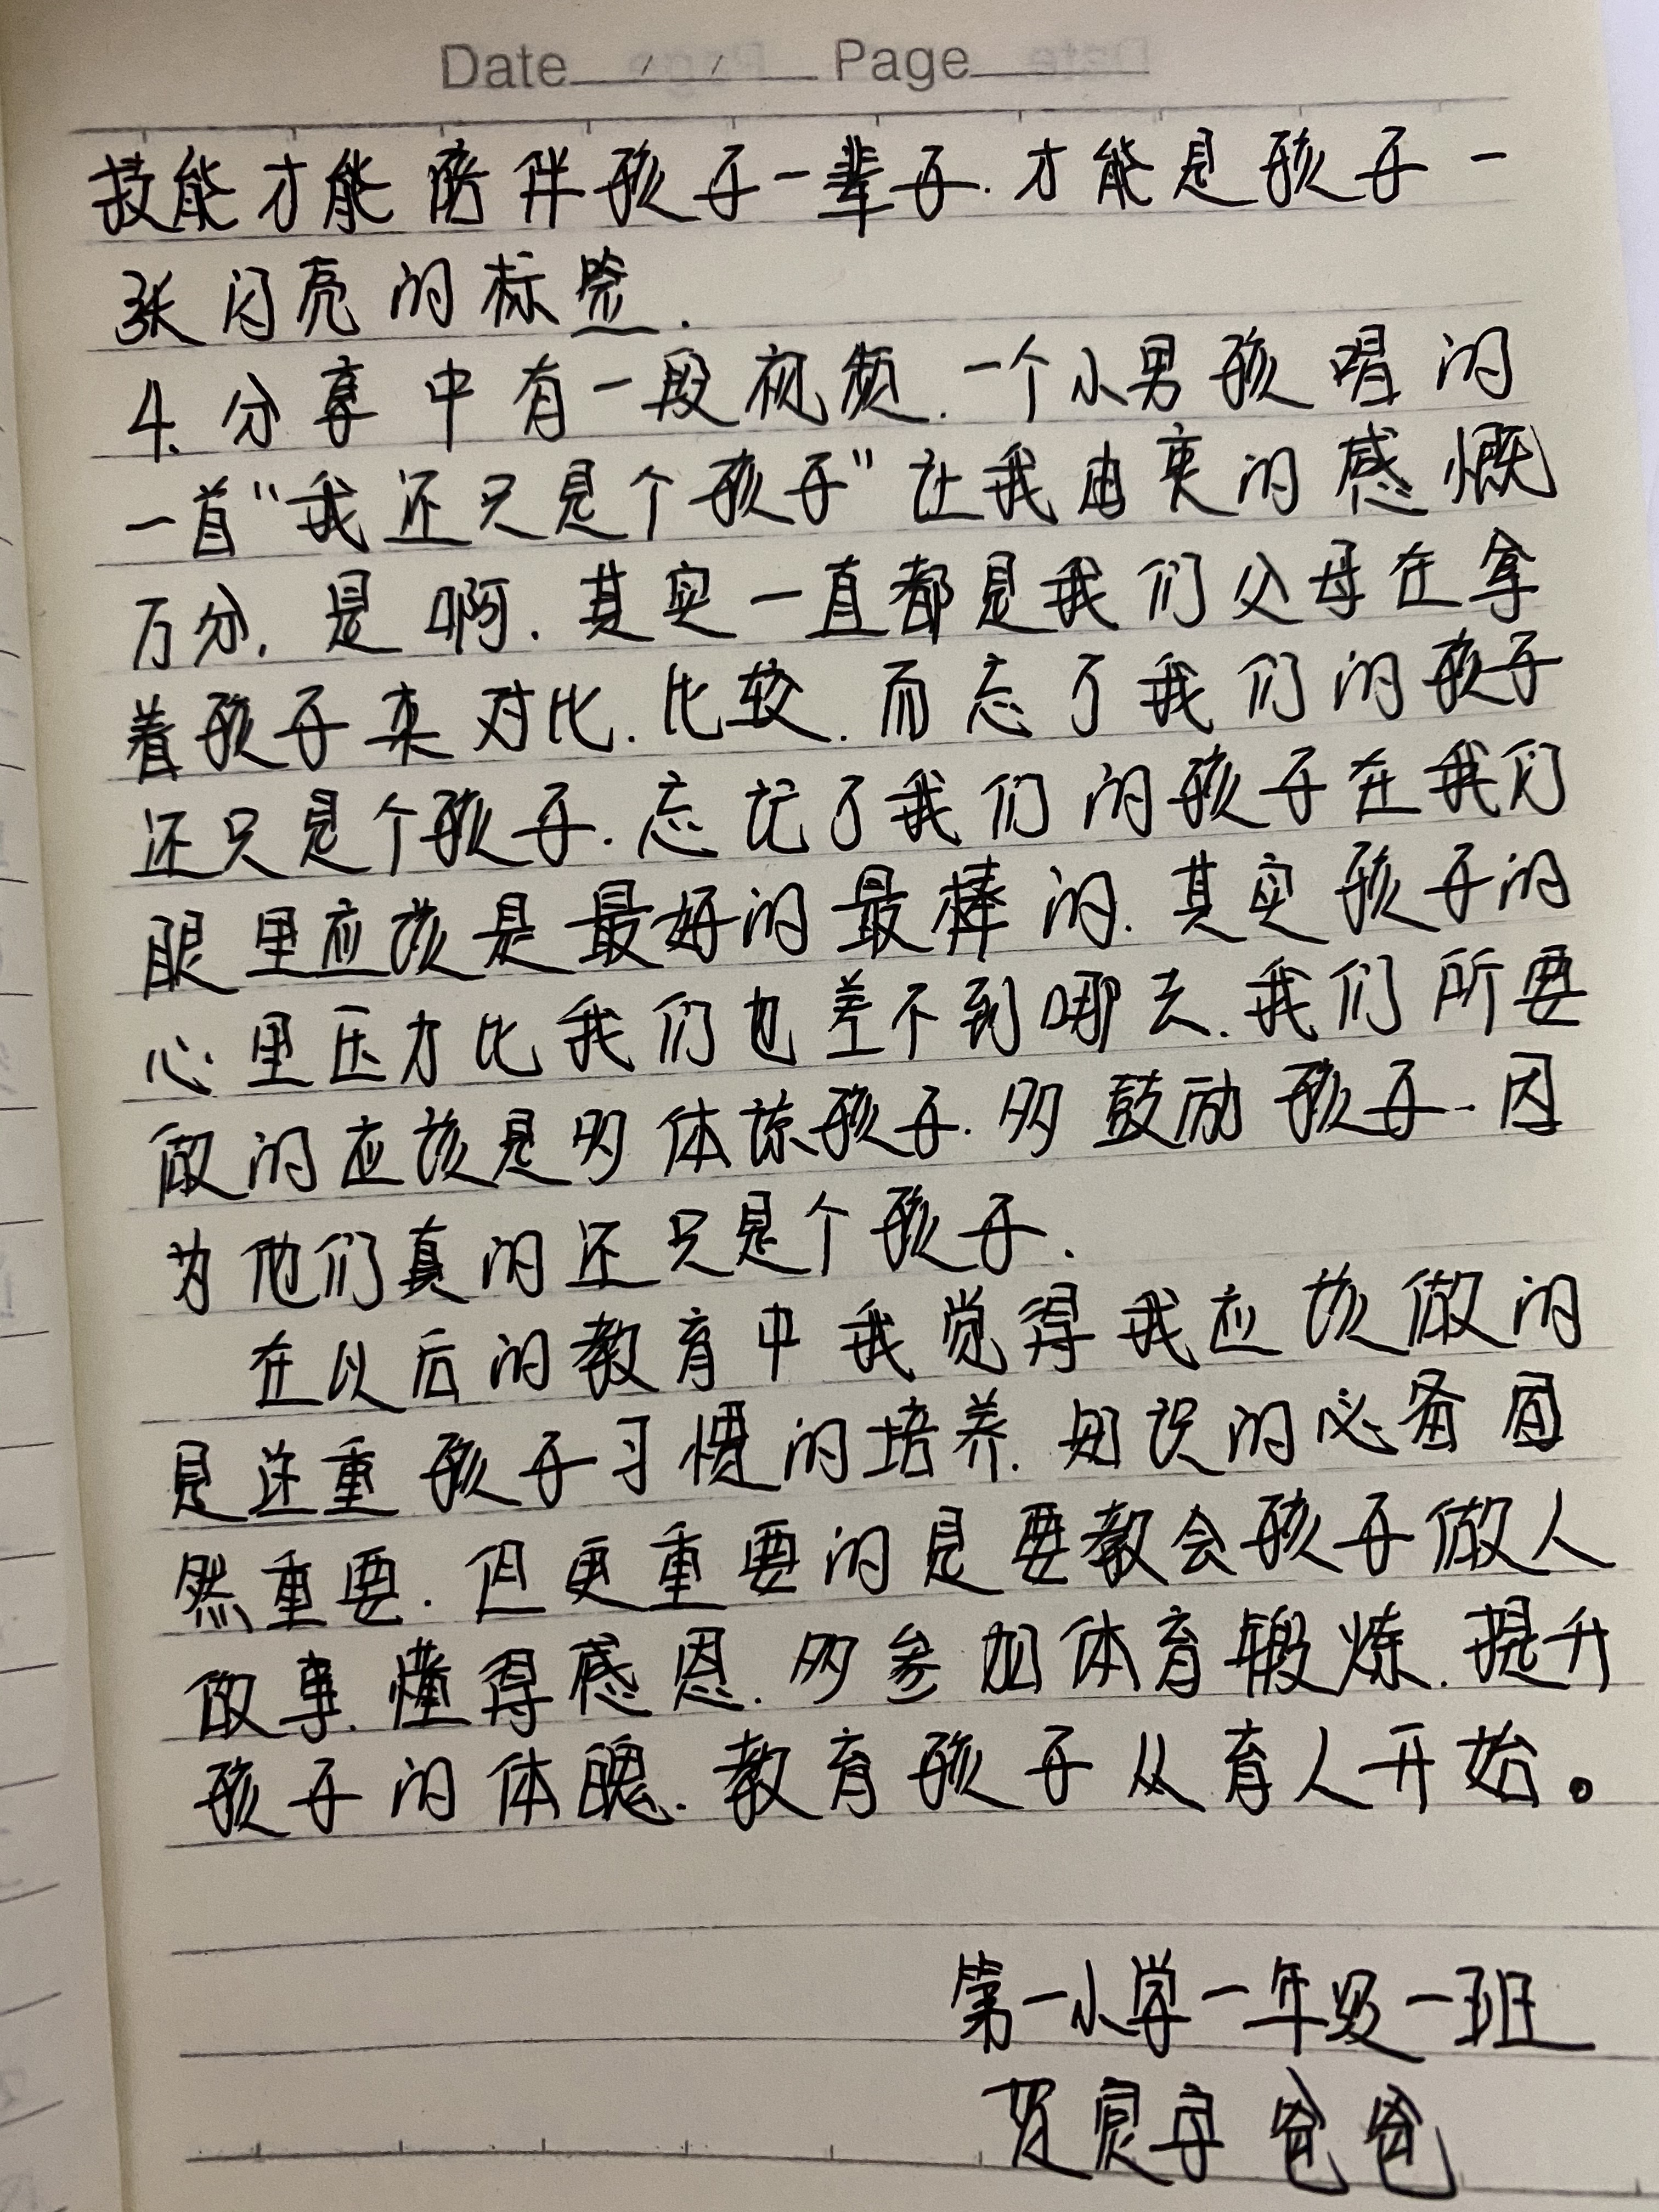 Date / / Page
技能才能陪伴孩子一辈子.才能是孩子一
张闪亮的标签.
4.分享中有一段视频.一个小男孩唱的
一首“我还只是个孩子”让我由衷的感慨
万分.是啊.其实一直都是我们父母在拿
着孩子来对比.比较.而忘了我们的孩子
还只是个孩子.忘记了我们的孩子在我们
眼里应该是最好的最棒的.其实孩子的
心里压力比我们也差不到哪去.我们所要
做的应该是多体谅孩子.多鼓励孩子.因
为他们真的还只是个孩子.
在以后的教育中我觉得我应该做的
是注重孩子习惯的培养.知识的必备固
然重要.但更重要的是要教会孩子做人
做事.懂得感恩.多参加体育锻炼.提升
孩子的体魄.教育孩子从育人开始。
第一小学一年级一班
爸爸